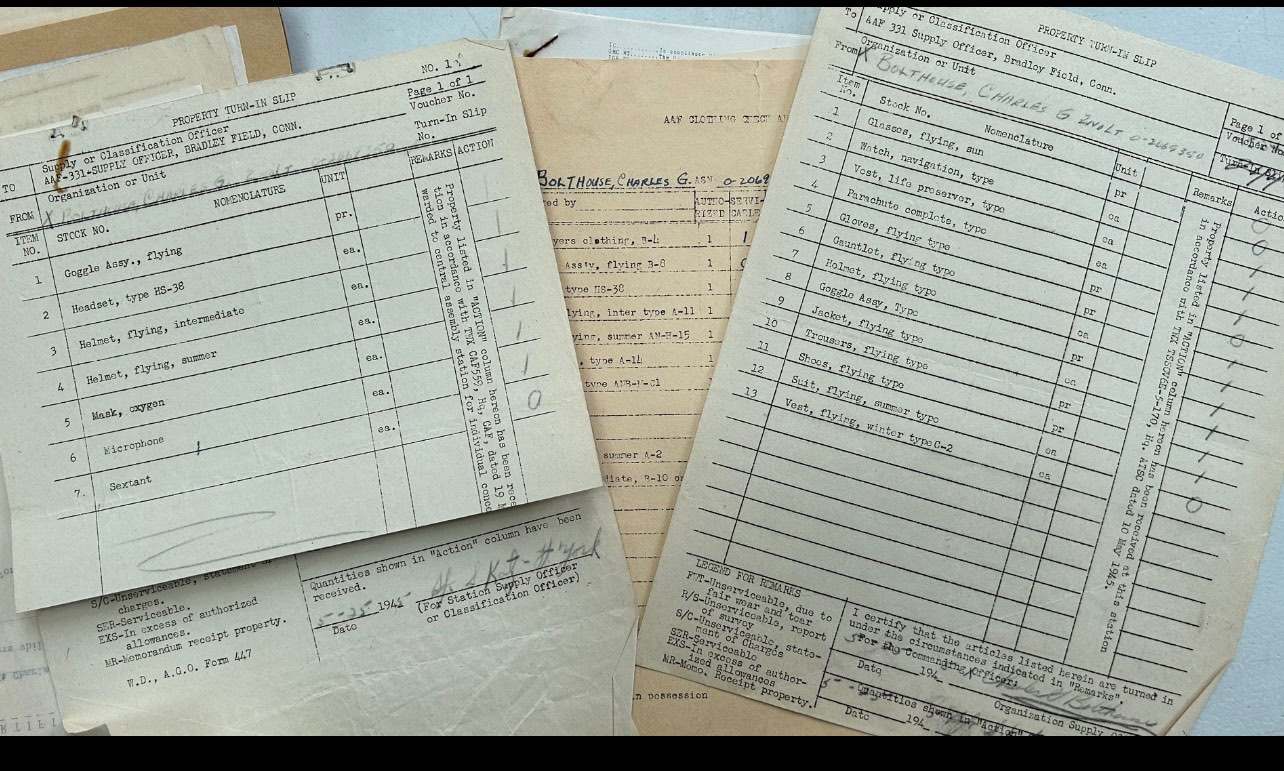 NO. 1
PROPERTY TURN-IN SLIP
Page 1 of 1
Voucher No.
Supply or Classification Officer
Turn-In Slip
No.
TO
AAF-331-SUPPLY OFFICER, BRADLEY FIELD, CONN.
Organization or Unit
FROM
X BOLTHOUSE, CHARLES G. 2NDLT
ITEM
NO.
STOCK NO.
NOMENCLATURE
UNIT
REMARKS
ACTION
1 Goggle Assy., flying pr. 1
2 Headset, type HS-38 ea. 1
3 Helmet, flying, intermediate ea. 1
4 Helmet, flying, summer ea. 1
5 Mask, oxygen ea. 1
6 Microphone ea. 1
7. Sextant ea. 0
Property listed in "ACTION" column hereon has been
tion in accordance with TWX CAF559, Hq, CAF, dated 19
warded to central assembly station for individual
S/C-Unserviceable, Statement of
charges.
SER-Serviceable.
EXS-In excess of authorized
allowances.
MR-Memorandum receipt property.
W.D., A.G.O. Form 447
Quantities shown in "Action" column have been
received.
5-25 1945
Date
(For Station Supply Officer
or Classification Officer)
AAF CLOTHING CHECK
BOLTHOUSE, CHARLES G. ASN 0-2069
ed by
AUTHO-
RIZED
SERVI-
CABLE
yers clothing, B-4 1 1
Ass'y, flying B-8 1
type HS-38 1
lying, inter type A-11 1
ying, summer AN-H-15 1
type A-14 1
type ANB-M-C1 1
summer A-2
diate, B-10 or
in possession
PROPERTY TURN-IN SLIP
To
Supply or Classification Officer
AAF 331 Supply Officer, Bradley Field, Conn.
Organization or Unit
From X BOLTHOUSE, CHARLES G. 2NDLT 0-2069350
Page 1 of
Voucher No.
Item
No.
Stock No.
Nomenclature
Unit
Remarks
Action
1 Glasses, flying, sun pr 0
2 Watch, navigation, type ea 0
3 Vest, life preserver, type ea 1
4 Parachute complete, type ea 1
5 Gloves, flying type pr 1
6 Gauntlet, flying type pr 0
7 Helmet, flying type pr 1
8 Goggle Assy, Type pr 1
9 Jacket, flying type ea 1
10 Trousers, flying type pr 1
11 Shoes, flying type pr 1
12 Suit, flying, summer type ea 1
13 Vest, flying, winter type C-2 ea 0
Property listed in "ACTION" column hereon has been received at this station
in accordance with TWX TSCOVEE-5-170, Hq. ATSC dated 10 May 1945.
LEGEND FOR REMARKS
FWT-Unserviceable, due to
fair wear and tear
R/S-Unserviceable, report
of survey
S/C-Unserviceable, state-
ment of Charges
SER-Serviceable
EXS-In excess of author-
ized allowances
MR-Memo. Receipt property.
I certify that the articles listed herein are turned in
under the circumstances indicated in "Remarks".
For the Commanding Officer:
Date 194
Organization Supply
Quantities shown in "Action"
Date 194